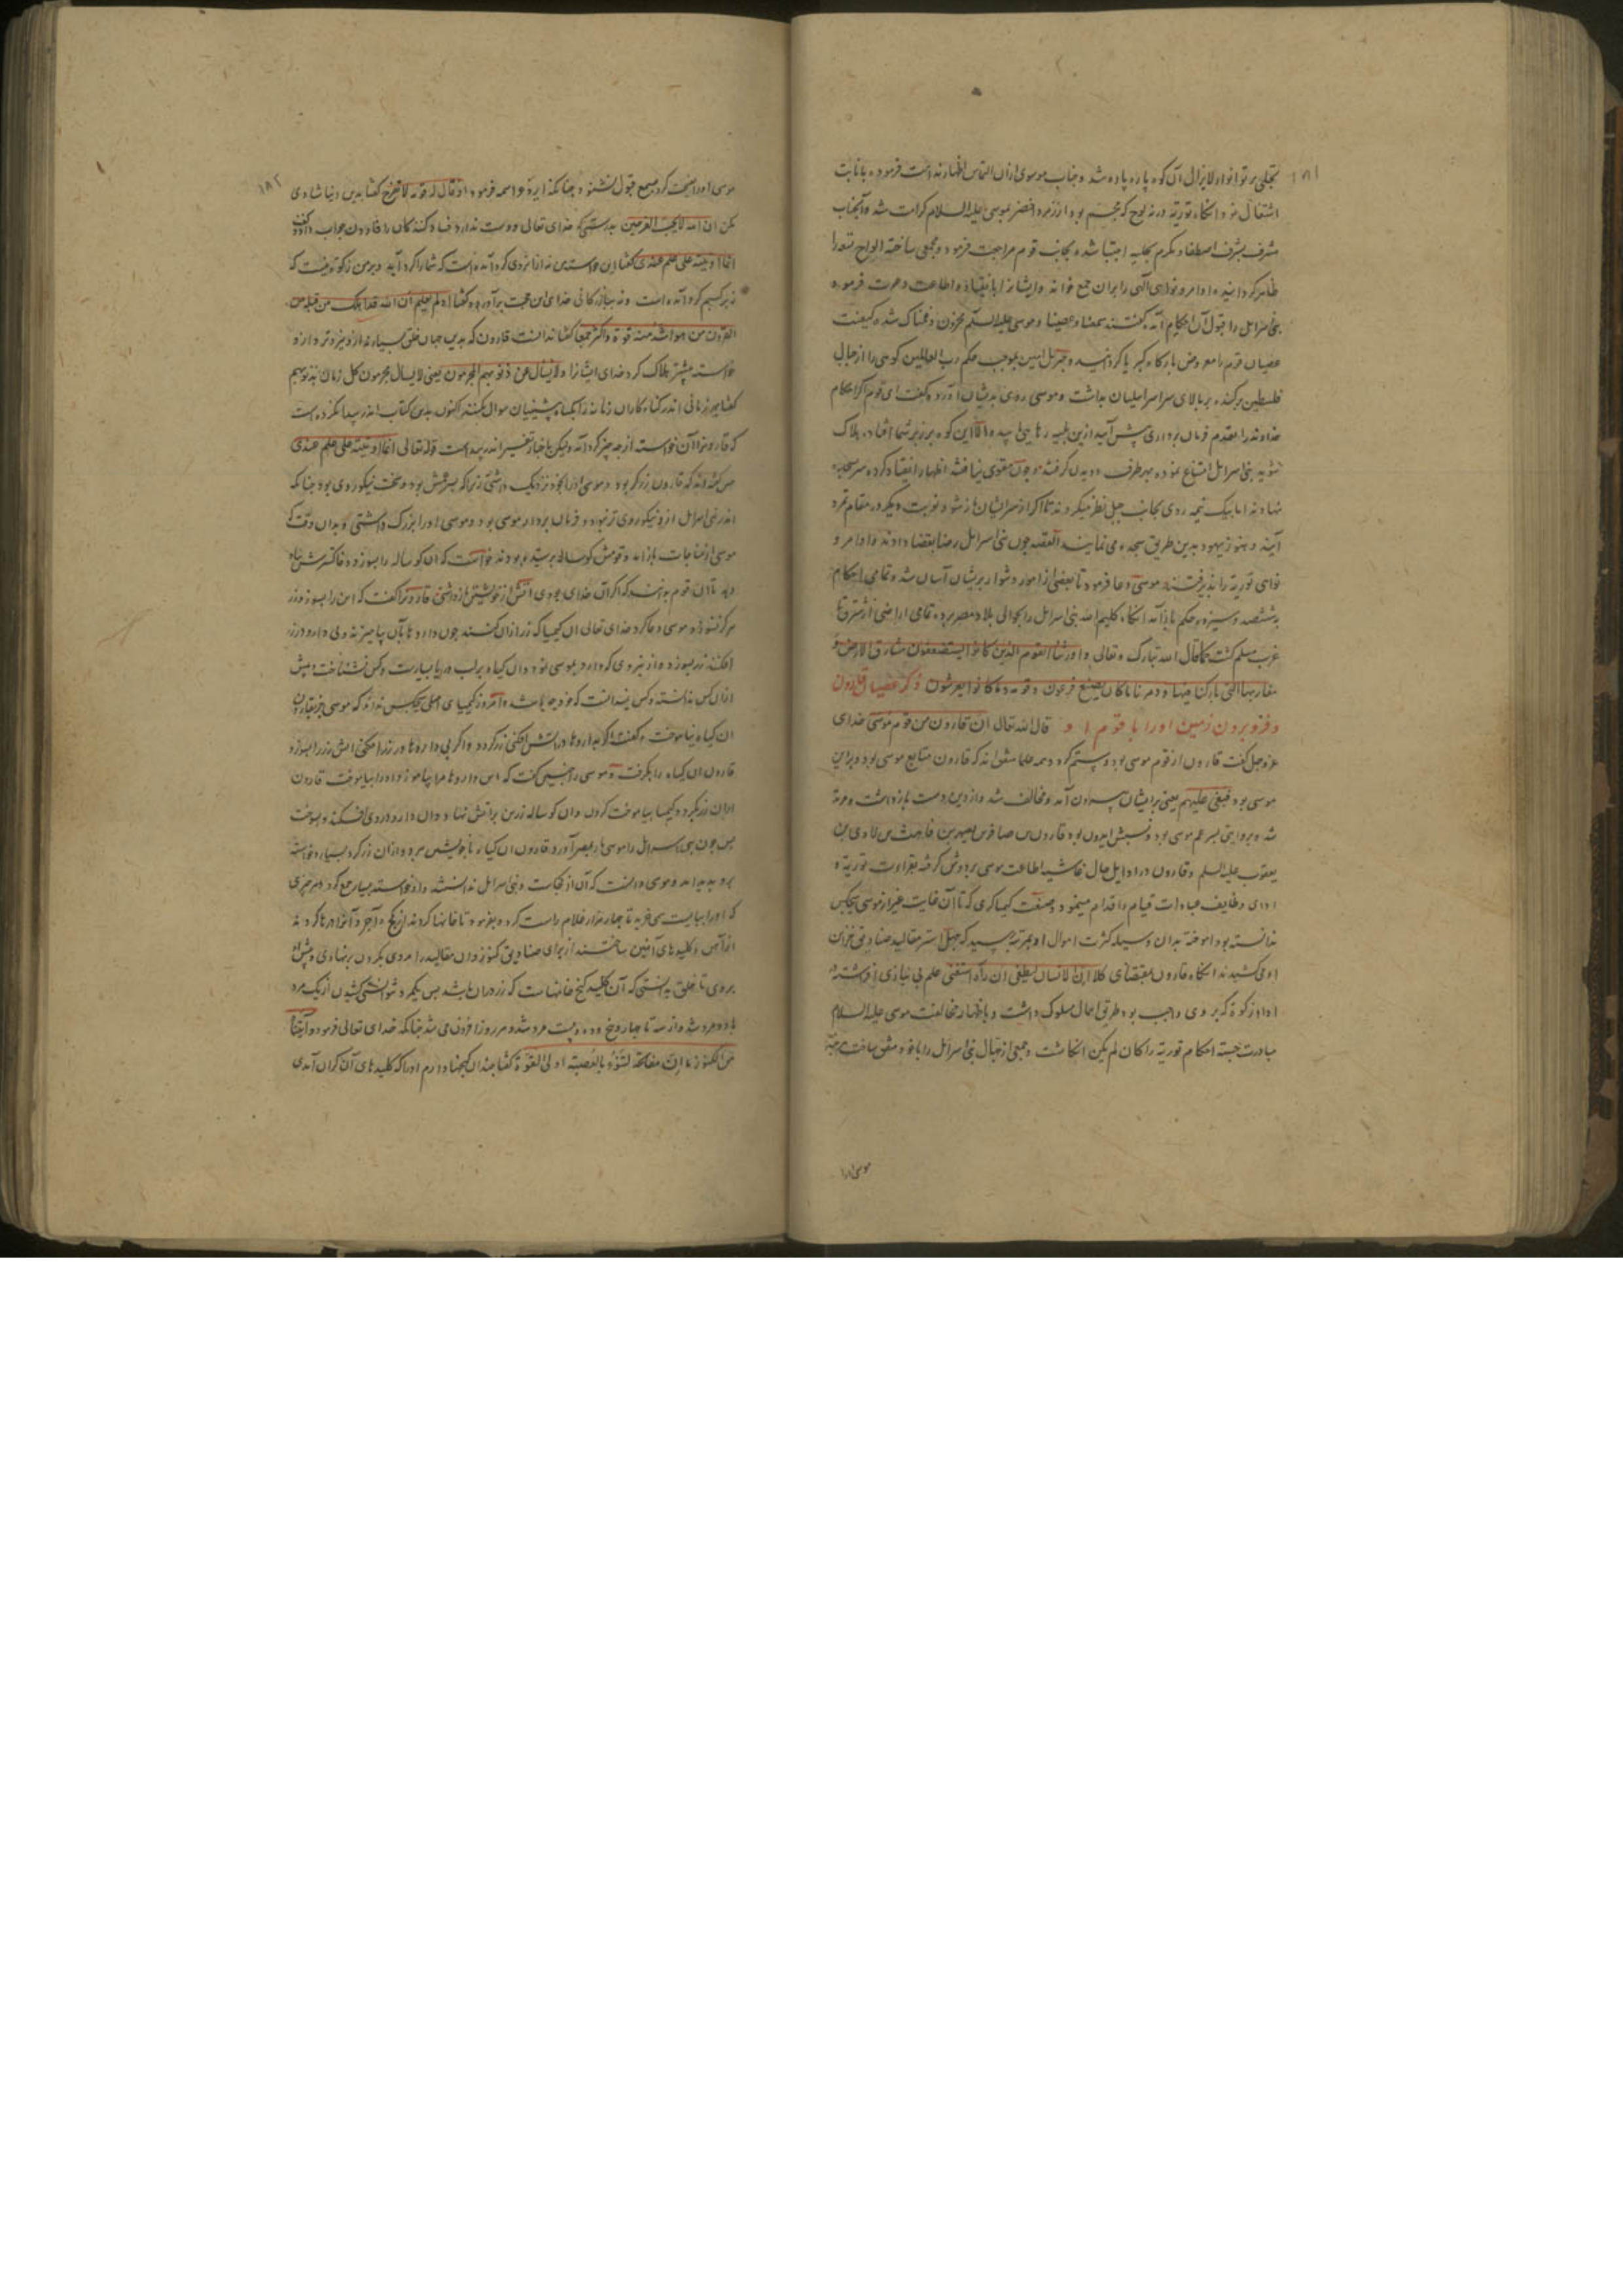 ۱۸۱
تجلی پرتو انوار لایزال آن کوه پاره پاره شد و جناب موسوی ازان التماس اظهار ندامت فرموده بانابت
اشتغال نمود و آنکاه توریة در نه لوح که مجسم بود از زمرد اخضر بموسی علیه السلام کرامت شد و آنجناب
مشرف بشرف اصطفا و مکرم بحلیه اجتبا شده بجانب قوم مراجعت فرمود و مجمعی ساخته الواح متعدد را
ظاهر کردانیده اوامر و نواهی الهی را بران جمع خوانه و ایشانرا بانقیاد و اطاعت دعوت فرموده
بنی اسرائل را قبول آن احکام آمد کفتند سمعنا وعصینا و موسی علیه السلم محزون و غمناک شده کیفیت
عصیان قوم را معروض بارکاه کبریا کردانید و جبرئل امین بموجب حکم رب العالمین کوهی را از جبال
فلسطین برکنده بر بالای سر اسرائیلیان بداشت و موسی روی بدیشان آورده کفت ای قوم اکر احکام
خداوند را بقدم فرمان برداری پیش آیید ازین بلیه رهایی یابید و الا این کوه بر زبر شما افتاده هلاک
شوید بنی اسرائل امتناع نموده بهر طرف دویدن کرفتند و چون مقری نیافتند اظهار انقیاد کرده سر بسجده
نهادند اما بیک نیمه روی بجانب جبل نظر میکردند تا اکر از سر ایشان باز شود نوبت دیکر در مقام تمرد
آیند و هنوز یهود بدین طریق سجده می نمایند القصه چون بنی اسرائل رضا بقضا دادند و اوامر و
نواهی توریة را پذیرفتند موسی دعا فرمود تا بعضی از امور دشوار بریشان آسان شد و تمامی احکام
بششصد و سیزده حکم بازآمد آنکاه کلیم الله بنی اسرائل را بحوالی بلاد مصر برده تمامی اراضی از شرق تا
غرب مسلم کشت کما قال الله تبارک وتعالی واورثنا القوم الذین کانوا یستضعفون مشارق الارض و
مغاربها التی بارکنا فیها ودمرنا ما کان یصنع فرعون وقومه وما کانوا یعرشون ذکر عصیان قارون
و فرو بردن زمین او را با قوم او قال الله تعالی ان قارون من قوم موسی خدای
عزوجل کفت قارون از قوم موسی بود و ستم کرد و همه علما متفق اند که قارون متابع موسی بود و بر این
موسی بود فبغی علیهم یعنی بر ایشان بیرون آمد و مخالف شد و از دین دست بازداشت و مرتد
شد و بروایتی پسر عم موسی بود و نسبش ایدون بود قارون بن صافر بن یصهر بن قاهث بن لاوی بن
یعقوب علیه السلم و قارون در اوایل حال غاشیه اطاعت موسی بر دوش کرفته بقراءت توریة و
ادای وظایف عبادات قیام و اقدام مینمود و صنعت کیمیاکری که تا آن غایت غیر از موسی هیچکس
ندانسته بود آموخته بدان وسیله کثرت اموال او بمرتبه رسید که چهل استر مقالید صنادیق خزاین
او می کشیدند آنکاه قارون بمقتضای کلا ان الانسان لیطغی ان رآه استغنی علم بی نیازی افراشته
ادای زکوة که بر وی واجب بود طریق اهمال مسلوک داشت و باظهار مخالفت موسی علیه السلام
مبادرت جسته احکام توریة را کان لم یکن انکاشت و جمعی از جهال بنی اسرائل را با خود متفق ساخت هرچند
موسی او را
۱۸۲
موسی او را نصیحت کرد بسمع قبول نشنود چنانکه ایزد عز اسمه فرمود اذ قال له قومه لا تفرح کفتا بدین دنیا شادی
مکن ان الله لا یحب الفرحین بدرستی که خدای تعالی دوست ندارد فساد کنندکان را قارون جواب داد و کفت
انما اوتیته علی علم عندی کفتا این خواسته من نه از نزدی کرد آمده است که شما را کرد آید و بر من زکوة نیست که
نه بر کسبم کرد آمده است و نه ببازرکانی خدای این حجت بر آورده و کفتا اولم یعلم ان الله قد اهلک من قبله من
القرون من هو اشد منه قوة واکثر جمعا کفتا ندانست قارون که بدین جهان خلق بسیارند از و نیرو تر و از و
خواسته بیشتر هلاک کرد خدای ایشانرا ولا یسال عن ذنوبهم المجرمون یعنی لا یسال مجرمون کل زمان بذنوبهم
کفتا بهر زمانی اندر کناه کاران زمانه را بکناه پیشینیان سوال نکنند اکنون بدین کتاب اندر پیدا نکرده است
که قارونرا آن خواسته از چه چیز کرد آمد ولیکن باخبار تفسیر اندر پیداست قوله تعالی انما اوتیته علی علم عندی
پس کفته اند که قارون زرکر بود و موسی او را بخود نزدیک داشتی زیرا که پسر عمش بود و سخت نیکوروی بود چنانکه
اندر بنی اسرائل از و نیکوروی تر نبود و فرمان بردار موسی بود و موسی او را بزرک داشتی و بدان وقت که
موسی از مناجات بازامد و قومش کوساله پرستیده بودند خواست که ان کوساله را بسوزد و خاکسترش بباد
دهد تا ان قوم بدانند که اکر آن خدای بودی آتش از خویشتن بازداشتی قارون را کفت که این را بسوز و زر
هرکز نسوزد و موسی دعا کرد خدای تعالی ان کیمیا که زر ازان کنند چون دارو با آن بیامیزند و بی دارو در زر
افکند زر بسوزد و از نیروی که دارد بموسی نمود و ان کیاه بر لب دریا بسیارست و کس نشناخت و پیش
ازان کس ندانسته و کس نپنداشت که خود چه باشد و امروز کیمیای اصلی هیچکس نداند که موسی جز بقارون
ان کیاه نیاموخت و کفت اکر با داروها در آتش افکنی زر کردد و اکر بی داروها در زر افکنی آتش زر را بسوزد
قارون ان کیاه را بکرفت و موسی را چنین کفت که این داروها مرا بیاموز و او را بیاموخت قارون
ازان زر بکرد و کیمیا بیاموخت کردن و ان کوساله زرین بر اتش نهاد و دان دارو در وی افکند و بسوخت
پس چون بنی اسرائل را موسی باز بمصر آورد و قارون ان کیاه با خویشتن ببرد و ازان زر کرد بسیار و خواسته
برو پدید امد و موسی دانست که آن از کجاست و بنی اسرائل ندانستند و از خواسته بسیار جمع کرد و هر چیزی
که او را ببایست می خرید تا چهار هزار غلام راست کرد و بفرمود تا خانها کردند از کج و آجر و آنرا درها کردند
از آهن و کلیدهای آهنین ساختند از برای صنادیق کنوز و ان مقالید را مردی بکردن برنهادی و پیش
بردی تا خلق بدانستی که آن کلید کنج خانهاست که زر دران باشد پس یکمرد نتوانستی کشیدن از یک مرد
بدو مرد شد و از سه تا چهار و پنج و ده و بیست مرد شد و هر روز افزون می شد چنانکه خدای تعالی فرمود و آتیناه
من الکنوز ما ان مفاتحه لتنوء بالعصبة اولی القوة کفتا چندان کنجها دادم او را که کلیدهای آن کران آمدی